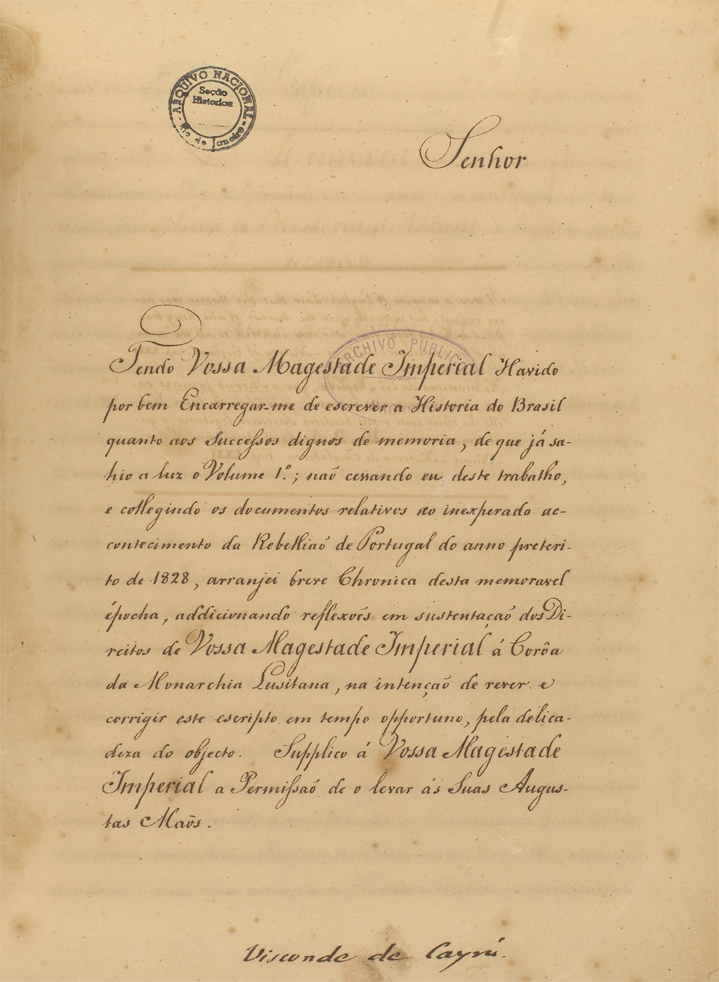 ARQUIVO NACIONAL
Seção
Historica
Rio de Janeiro
Senhor
ARCHIVO PUBLIC
Tendo Vossa Magestade Imperial Havido
por bem Encarregar-me de escrever a Historia do Brasil
quanto aos Successos dignos de memoria, de que já sa-
hio a luz o Volume 1º; naõ cessando eu deste trabalho,
e collegindo os documentos relativos ao inexperado ac-
contecimento da Rebelliaõ de Portugal do anno preteri-
to de 1828, arranjei breve Chronica desta memoravel
épocha, addicionando reflexoẽs em sustentaçaõ dos Di-
reitos de Vossa Magestade Imperial á Corôa
da Monarchia Lusitana, na intenção de rever e
corrigir este escripto em tempo opportuno, pela delica-
deza do objecto. Supplico á Vossa Magestade
Imperial a Permissaõ de o levar ás Suas Augus-
tas Maõs.
Visconde de Cayrú.